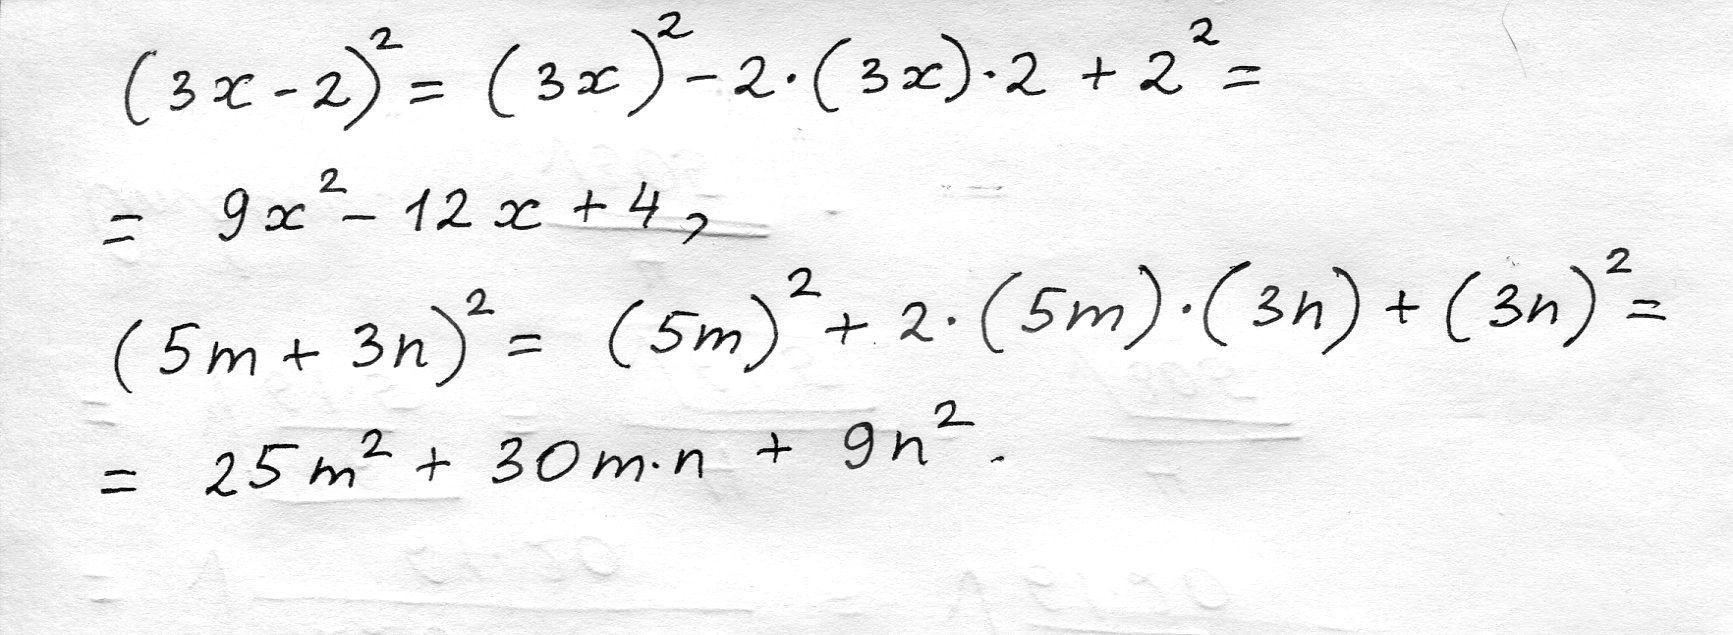 (3x-2)² = (3x)² - 2·(3x)·2 + 2² =
= 9x² - 12x + 4,
(5m + 3n)² = (5m)² + 2·(5m)·(3n) + (3n)² =
= 25m² + 30m·n + 9n².